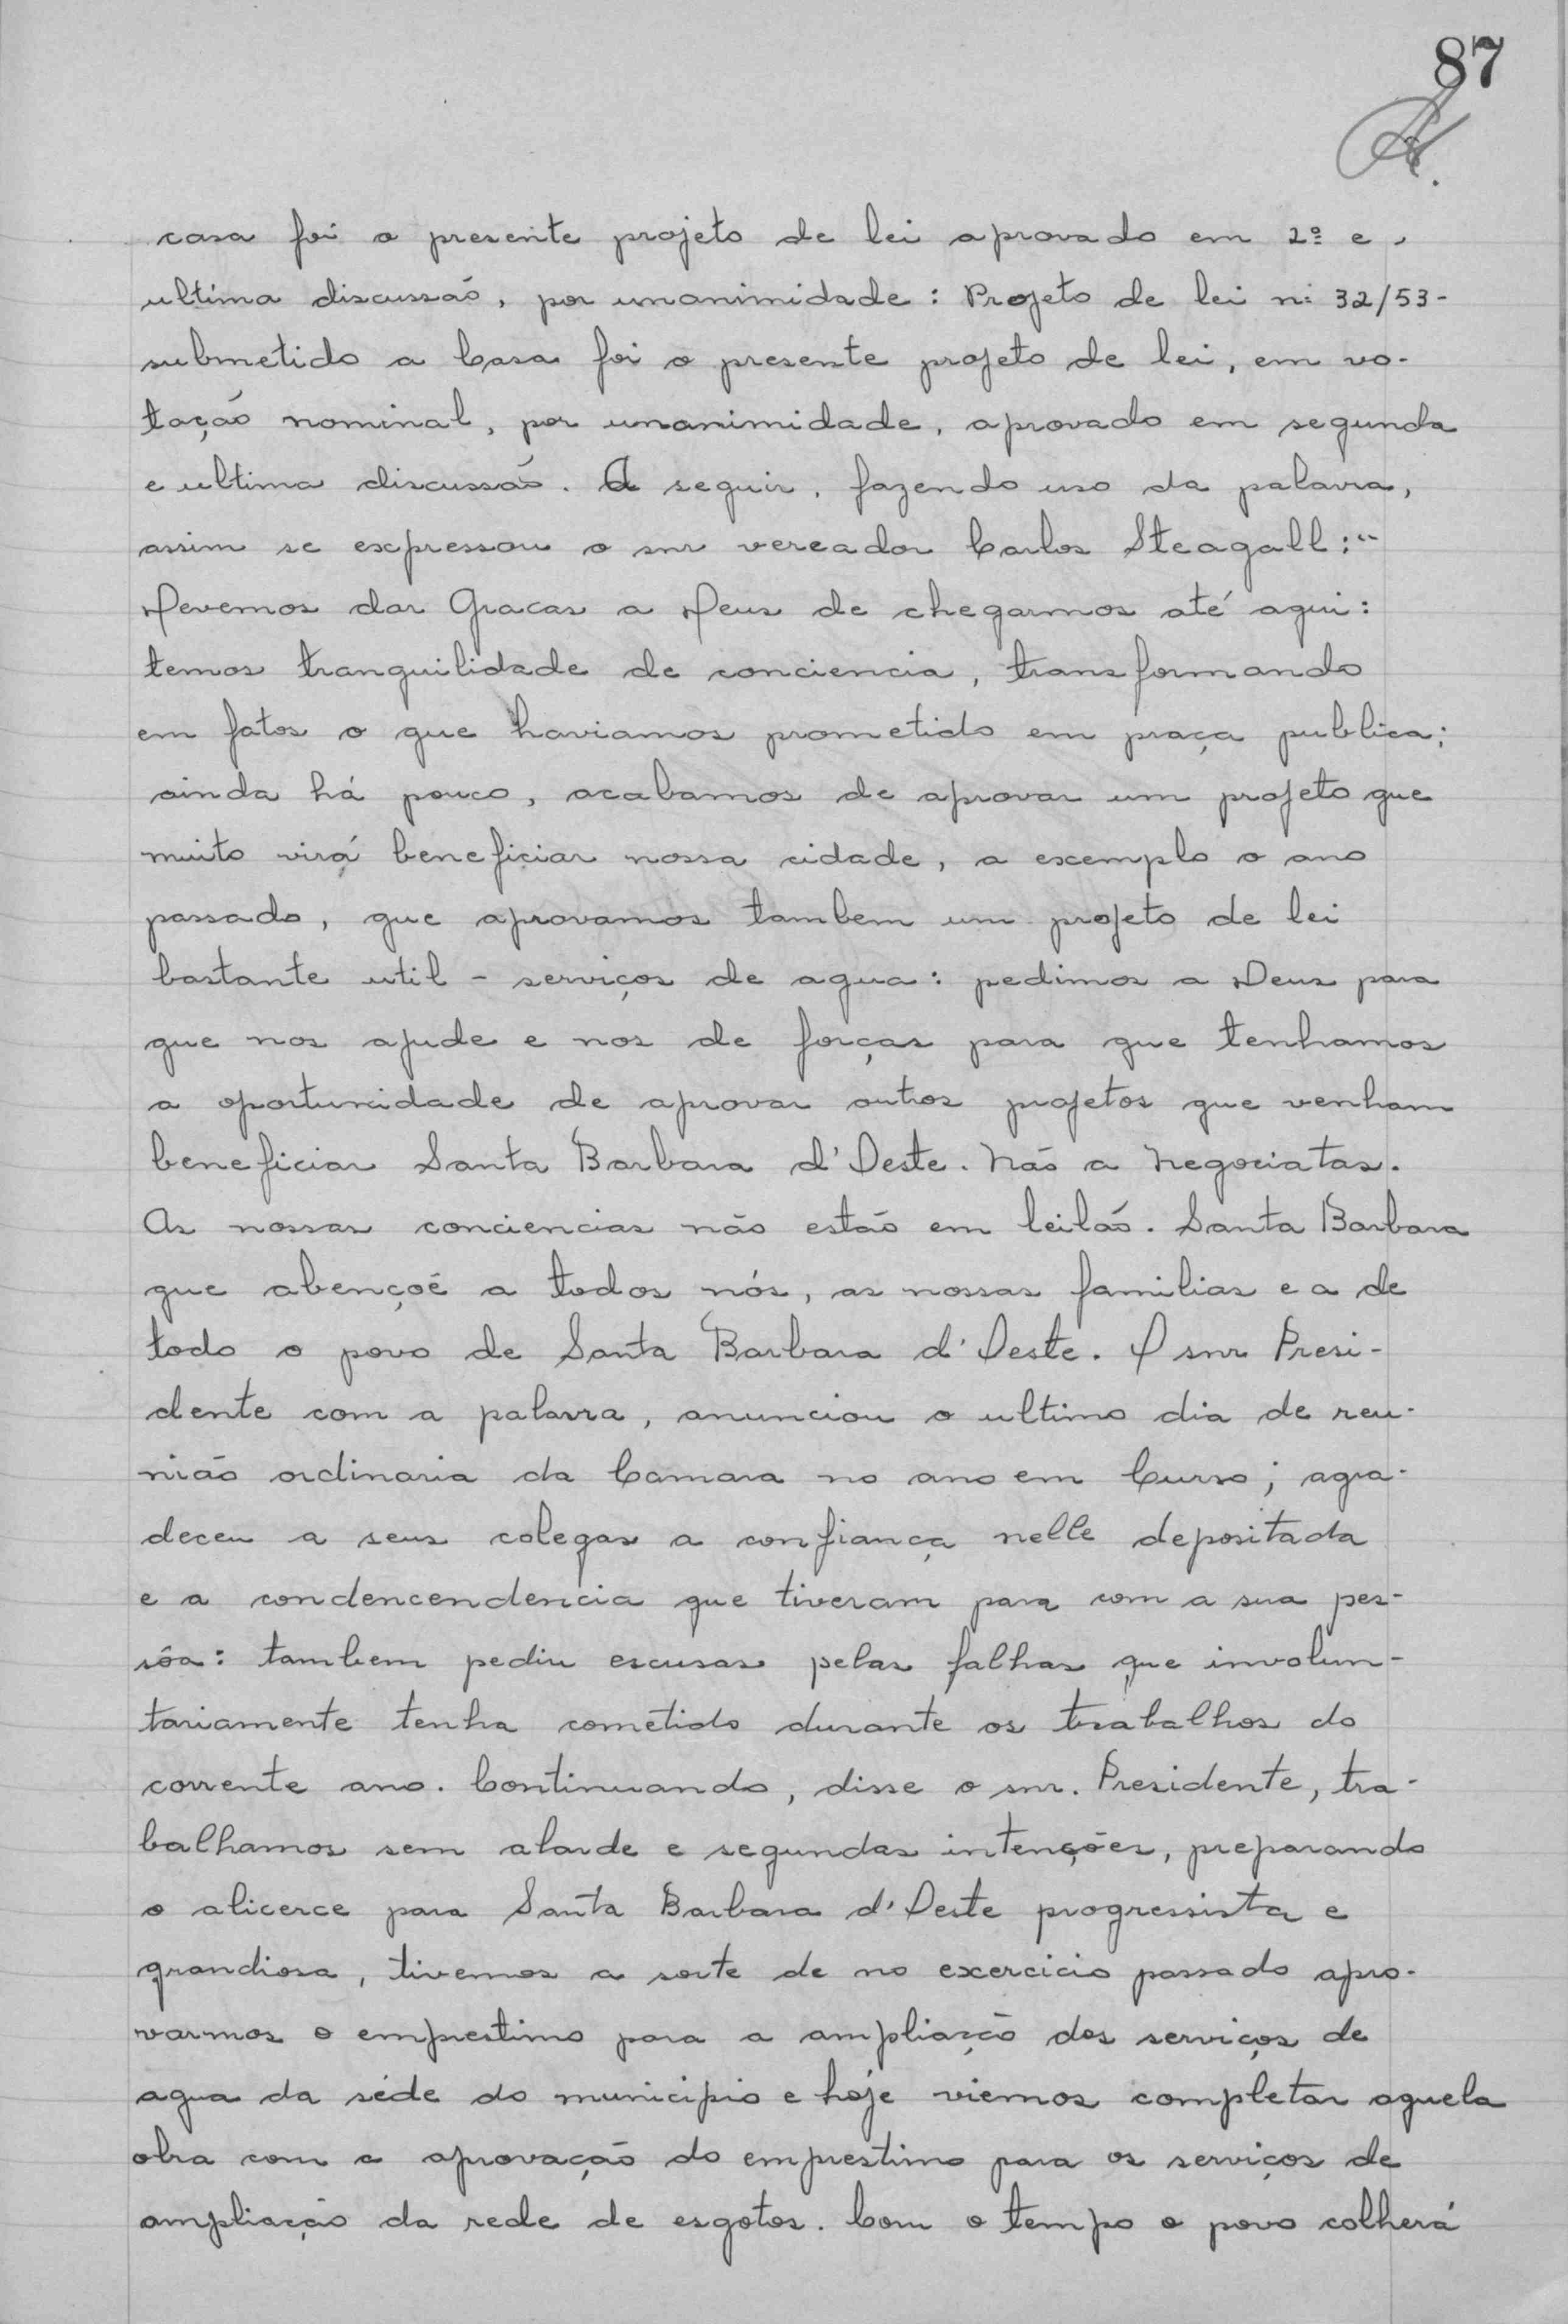 87
casa foi o presente projeto de lei aprovado em 2º e,
ultima discussão, por unanimidade: Projeto de lei nº 32/53-
submetido a Casa foi o presente projeto de lei, em vo-
tação nominal, por unanimidade, aprovado em segunda
e ultima discussão. A seguir, fazendo uso da palavra,
assim se expressou o snr vereador Carlos Steagall:"
Devemos dar Gracas a Deus de chegarmos até aqui:
temos tranquilidade de conciencia, transformando
em fatos o que haviamos prometido em praça publica;
ainda há pouco, acabamos de aprovar um projeto que
muito virá beneficiar nossa cidade, a exemplo o ano
passado, que aprovamos tambem um projeto de lei
bastante util - serviços de agua: pedimos a Deus para
que nos ajude e nos de forças para que tenhamos
a oportunidade de aprovar outros projetos que venham
beneficiar Santa Barbara d'Oeste. Não a Negociatas.
As nossas conciencias não estão em leilão. Santa Barbara
que abençoê a todos nós, as nossas familias e a de
todo o povo de Santa Barbara d'Oeste. O snr Presi-
dente com a palavra, anunciou o ultimo dia de reu-
nião ordinaria da Camara no ano em Curso; agra-
deceu a seus colegas a confiança nelle depositada
e a condencendencia que tiveram para com a sua pes-
sôa: tambem pediu escusas pelas falhas que involun-
tariamente tenha cometido durante os trabalhos do
corrente ano. Continuando, disse o snr. Presidente, tra-
balhamos sem alarde e segundas intenções, preparando
o alicerce para Santa Barbara d'Oeste progressista e
grandiosa, tivemos a sorte de no exercicio passado apro-
varmos o emprestimo para a ampliação dos serviços de
agua da séde do municipio e hoje viemos completar aquela
obra com a aprovação do emprestimo para os serviços de
ampliação da rede de esgotos. Com o tempo o povo colherá